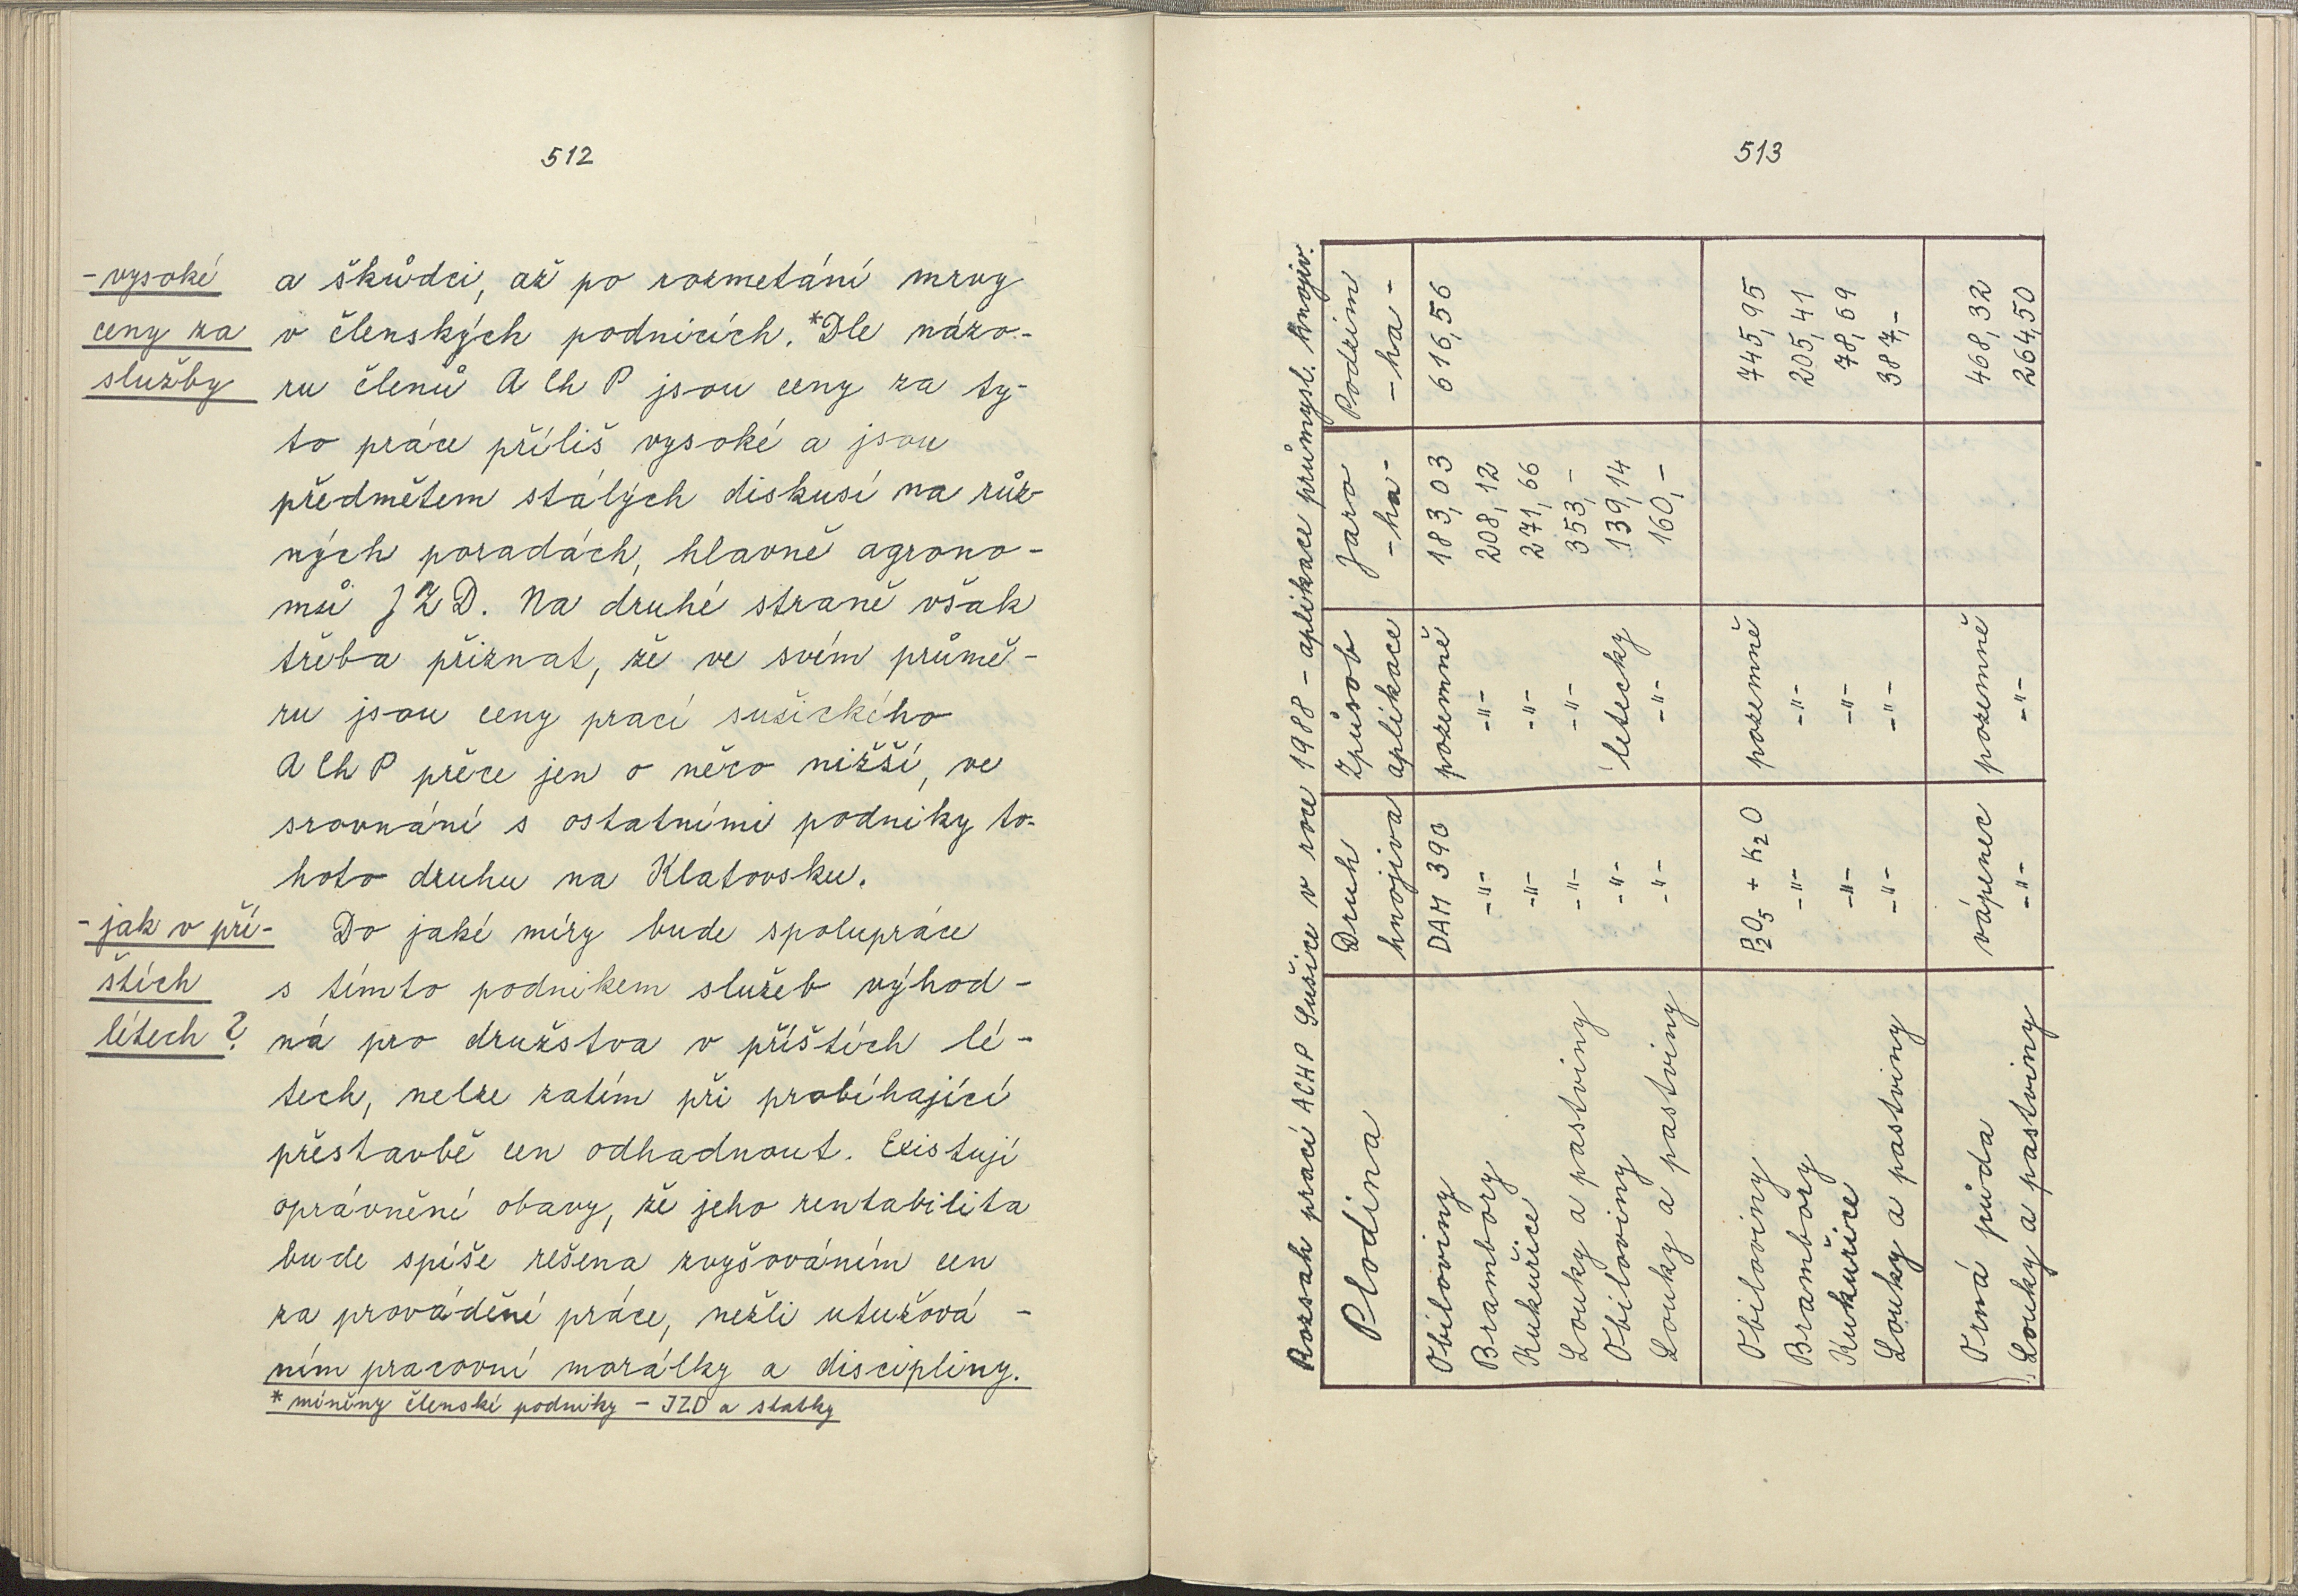 512
- vysoké
ceny za
služby
a škůdci, až po rozmetání mrvy
v členských podnicích. *Dle názo-
ru členů A Ch P jsou ceny za ty-
to práce příliš vysoké a jsou
předmětem stálých diskusí na růz-
ných poradách, hlavně agrono-
mů JZD. Na druhé straně však
třeba přiznat, že ve svém průmě-
ru jsou ceny prací sušického
A Ch P přece jen o něco nižší, ve
srovnání s ostatními podniky to-
hoto druhu na Klatovsku.
- jak v pří-
štích
létech?
Do jaké míry bude spolupráce
s tímto podnikem služeb výhod-
ná pro družstva v příštích lé-
tech, nelze zatím při probíhající
přestavbě cen odhadnout. Existují
oprávněné obavy, že jeho rentabilita
bude spíše řešena zvyšováním cen
za prováděné práce, nežli utužová-
ním pracovní morálky a discipliny.
* míněny členské podniky - JZD a statky
513
Rozsah prací ACHP Sušice v roce 1988 - aplikace průmysl. hnojiv.
Plodina Druh hnojiva Způsob aplikace Jaro - ha - Podzim - ha -
Obiloviny DAM 390 pozemně 183,03 616,56
Brambory -"- -"- 208,12
Kukuřice -"- -"- 271,66
Louky a pastviny -"- -"- 353,-
Obiloviny -"- letecky 139,14
Louky a pastviny -"- -"- 160,-
Obiloviny P2O5 + K2O pozemně 745,95
Brambory -"- -"- 205,41
Kukuřice -"- -"- 78,69
Louky a pastviny -"- -"- 387,-
Orná půda vápenec pozemně 468,32
Louky a pastviny -"- -"- 264,50